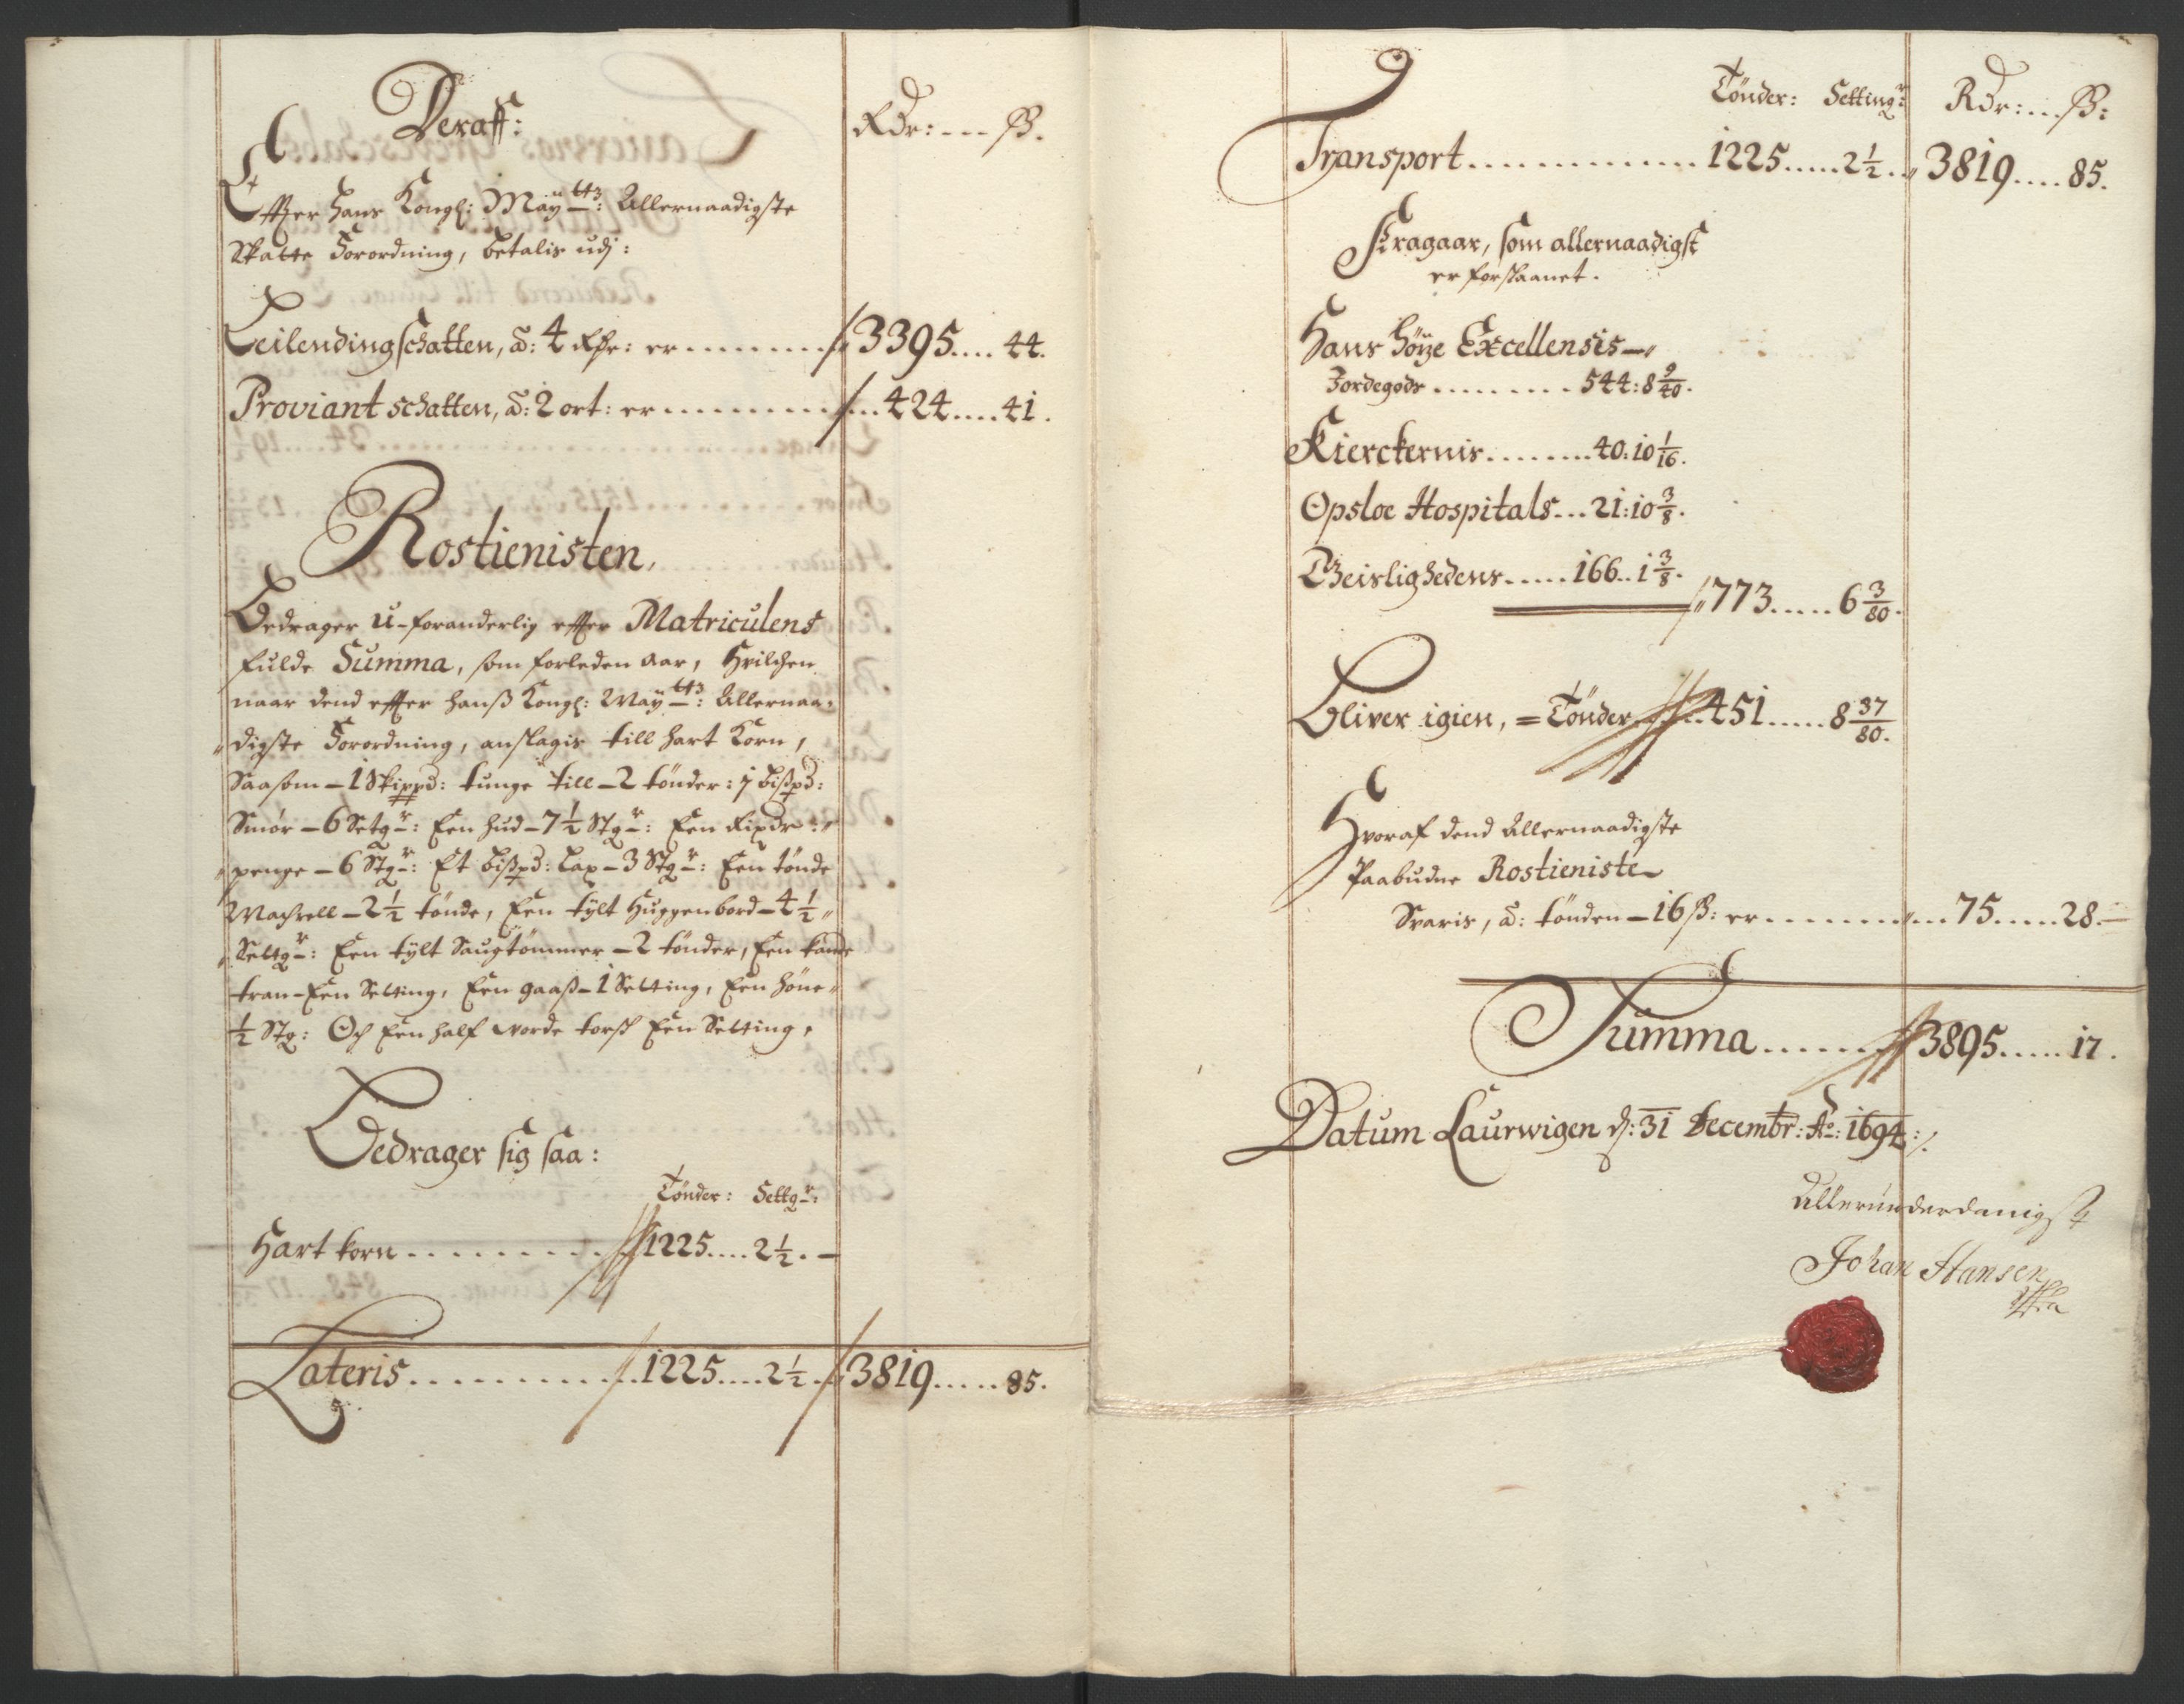 Deraff:
Rdr: ... ß.
Effter Hans Kongl: Maÿtts: Allernaadigste
Skatte Forordning, betalis udj:
Leilendingschatten, á: 4 Rdr: er ........ 3395 .... 44.
Proviant schatten, á: 2 ort: er ........ 424 .... 41.
Rostienisten,
Bedrager u-foranderlig effter Matriculens
fulde Summa, som forleden aar, Hvilchen
naar dend effter hanß Kongl: Maÿtts: Allernaa-
digste Forordning, anslagis till hart Korn,
Saasom – 1 Skippd: tunge till – 2 tönder: 1 bißpd:
Smör – 6 Setgr: Een hud – 7½ Stgr: Een Rixdr
penge – 6 Stgr: Et bißpd: Lax – 3 Stgr: Een tönde
Machrell – 2½ tönde, Een tÿlt Huggenbord – 4½
Settgr: Een tÿlt Saugtömmer – 2 tönder, Een kande
tran – Een Setting, Een gaaß – 1 Setting, Een höne
½ Stg: Och Een half vorde torsk Een Setting,
Bedrager sig saa:
Tönder: Settgr:
Hart korn ........ 1225 .... 2½. –
Lateris ........ 1225 .... 2½ .. 3819 ..... 85.
Tönder: Settingr: Rdr: ... ß:
Transport ........ 1225 ..... 2½ .. 3819 .... 85.
Fragaar, som allernaadigst
er forskaanet.
Hans Höÿe Excellensis
Jordegods ........ 544: 8 9/40.
Kierckernis ........ 40: 10 1/16.
Opsloe Hospitals ... 21: 10 3/8.
Gheislighedens ..... 166 .. 1 3/8.
773 ..... 6 3/80.
Bliver igien, = Tönder ..... 451 ..... 8 37/80.
Hvoraf dend Allernaadigste
Paabudne Rostieniste
Svaris, á: tönden – 16 ß: er ........ 75 ..... 28. –
Summa ....... 3895 ..... 17.
Datum Laurwigen d: 31 Decembr: Ao: 1694 :/.
Allerunderdanigst
Johan Hansen